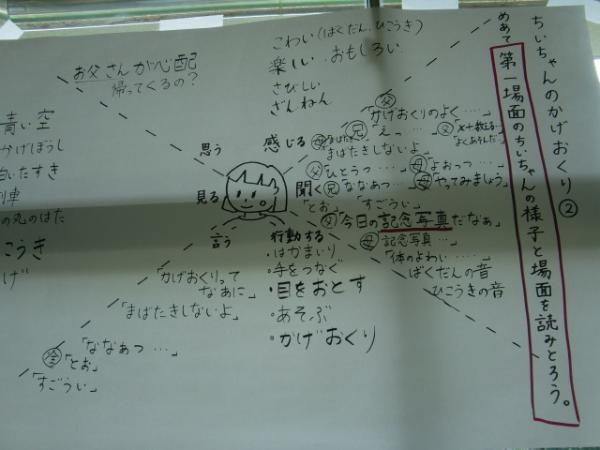 ちいちゃんのかげおくり②
めあて
第一場面のちいちゃんの様子と場面を読みとろう。
こわい(ばくだん、ひこうき)
楽しい おもしろい
さびしい
ざんねん
感じる
お父さんが心配
帰ってくるの?
思う
見る
青い空
かげぼうし
白いたすき
列車
の丸のはた
こうき
げ
聞く
父
「かげおくりのよく‥‥」
兄「えっ…」
まばたきしないよ」
父「ひとうつ…」
母「よおっつ…」
兄「ななあつ…」
母「やってみましょう」
「とお」
「すごうい」
父「今日の記念写真だなあ」
母「記念写真…」
「体のよわい‥‥」
ばくだんの音
ひこうきの音
行動する
・はかまいり
・手をつなぐ
・目をおとす
・あそぶ
・かげおくり
言う
「かげおくりって
なあに」
「まばたきしないよ」
「ななあつ…」
「とお」
「すごうい」